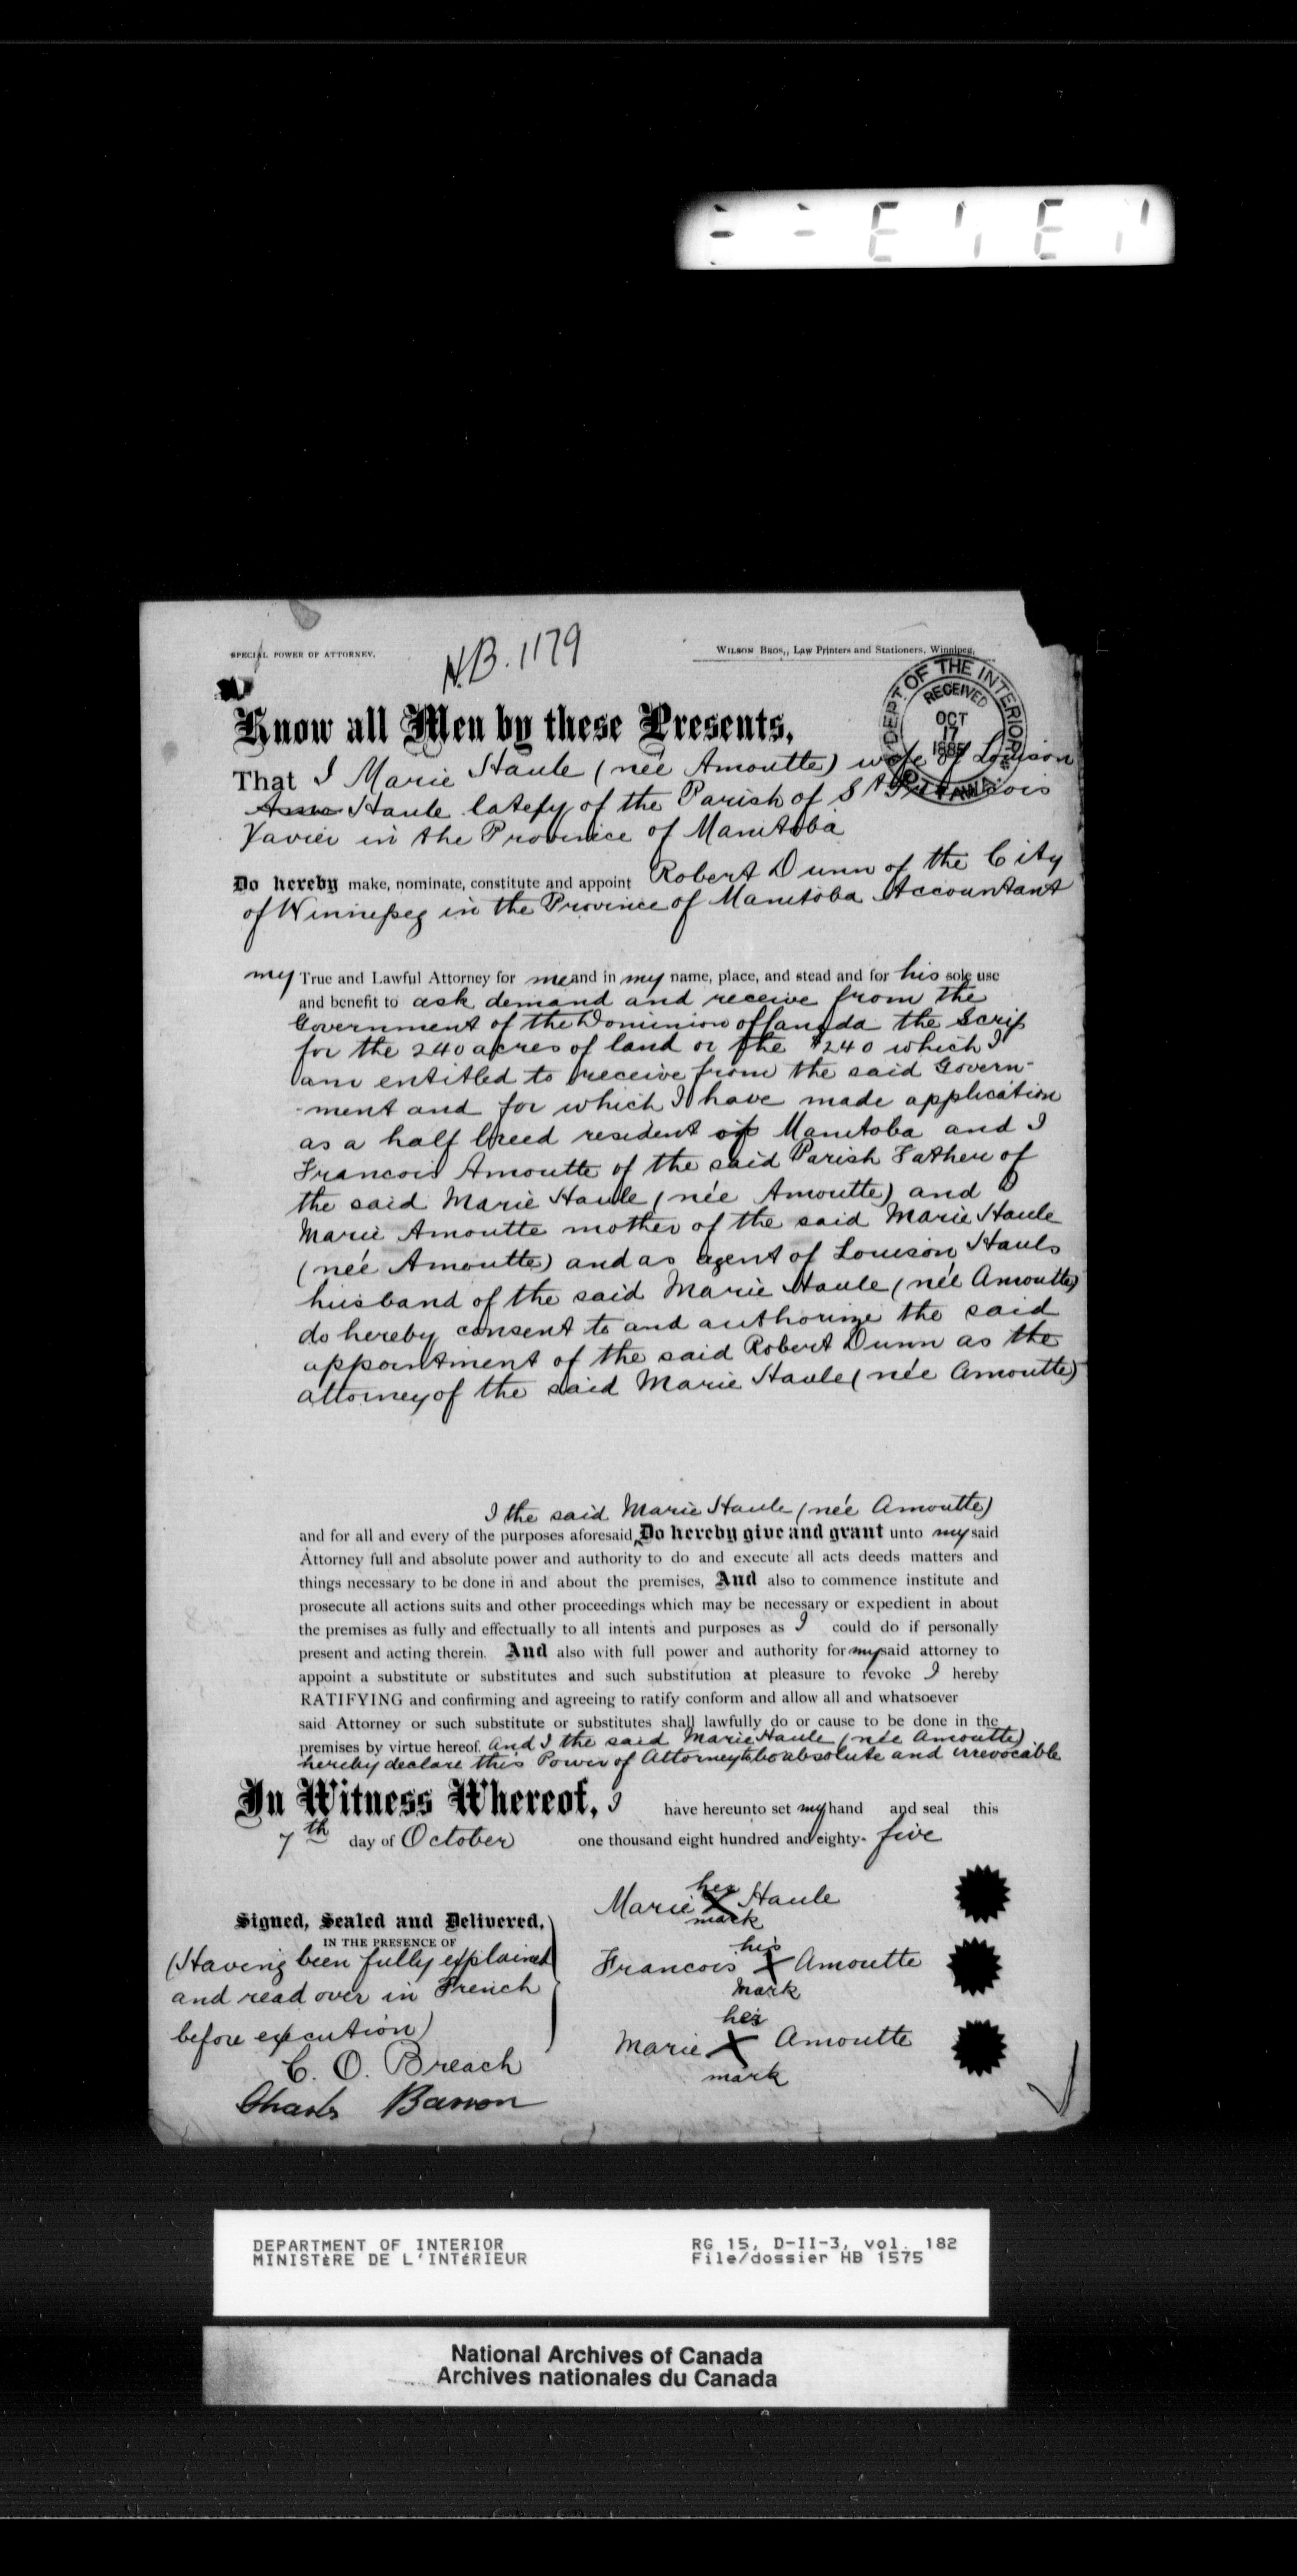 SPECIAL POWER OF ATTORNEY.
H.B. 1179
WILSON BROS., Law Printers and Stationers, Winnipeg.
DEPT. OF THE INTERIOR
RECEIVED
OCT
17
1885
OTTAWA.
Know all Men by these Presents,
That I Marie Haule (née Amoutte) wife of Louison
Haule lately of the Parish of St Francois
Xavier in the Province of Manitoba
Do hereby make, nominate, constitute and appoint Robert Dunn of the City
of Winnipeg in the Province of Manitoba Accountant
my True and Lawful Attorney for me and in my name, place, and stead and for his sole use
and benefit to ask demand and receive from the
Government of the Dominion of Canada the Scrip
for the 240 acres of land or the $240 which I
am entitled to receive from the said Govern-
-ment and for which I have made application
as a half breed resident of Manitoba and I
Francois Amoutte of the said Parish Father of
the said Marie Haule (née Amoutte) and I
Marie Amoutte mother of the said Marie Haule
(née Amoutte) and as agent of Louison Haule
husband of the said Marie Haule (née Amoutte)
do hereby consent to and authorize the said
appointment of the said Robert Dunn as the
attorney of the said Marie Haule (née Amoutte)
I the said Marie Haule (née Amoutte)
and for all and every of the purposes aforesaid, Do hereby give and grant unto my said
Attorney full and absolute power and authority to do and execute all acts deeds matters and
things necessary to be done in and about the premises, And also to commence institute and
prosecute all actions suits and other proceedings which may be necessary or expedient in about
the premises as fully and effectually to all intents and purposes as I could do if personally
present and acting therein. And also with full power and authority for my said attorney to
appoint a substitute or substitutes and such substitution at pleasure to revoke I hereby
RATIFYING and confirming and agreeing to ratify conform and allow all and whatsoever
said Attorney or such substitute or substitutes shall lawfully do or cause to be done in the
premises by virtue hereof. And I the said Marie Haule (née Amoutte)
hereby declare this Power of Attorney to be absolute and irrevocable
In Witness Whereof, I have hereunto set my hand and seal this
7th day of October one thousand eight hundred and eighty- five
Signed, Sealed and Delivered,
IN THE PRESENCE OF
(Having been fully explained
and read over in French
before execution)
C. O. Breach
Charles Barron
her
Marie X Haule
mark
his
Francois X Amoutte
mark
her
Marie X Amoutte
mark
DEPARTMENT OF INTERIOR
MINISTÈRE DE L'INTÉRIEUR
RG 15, D-II-3, vol. 182
File/dossier HB 1575
National Archives of Canada
Archives nationales du Canada